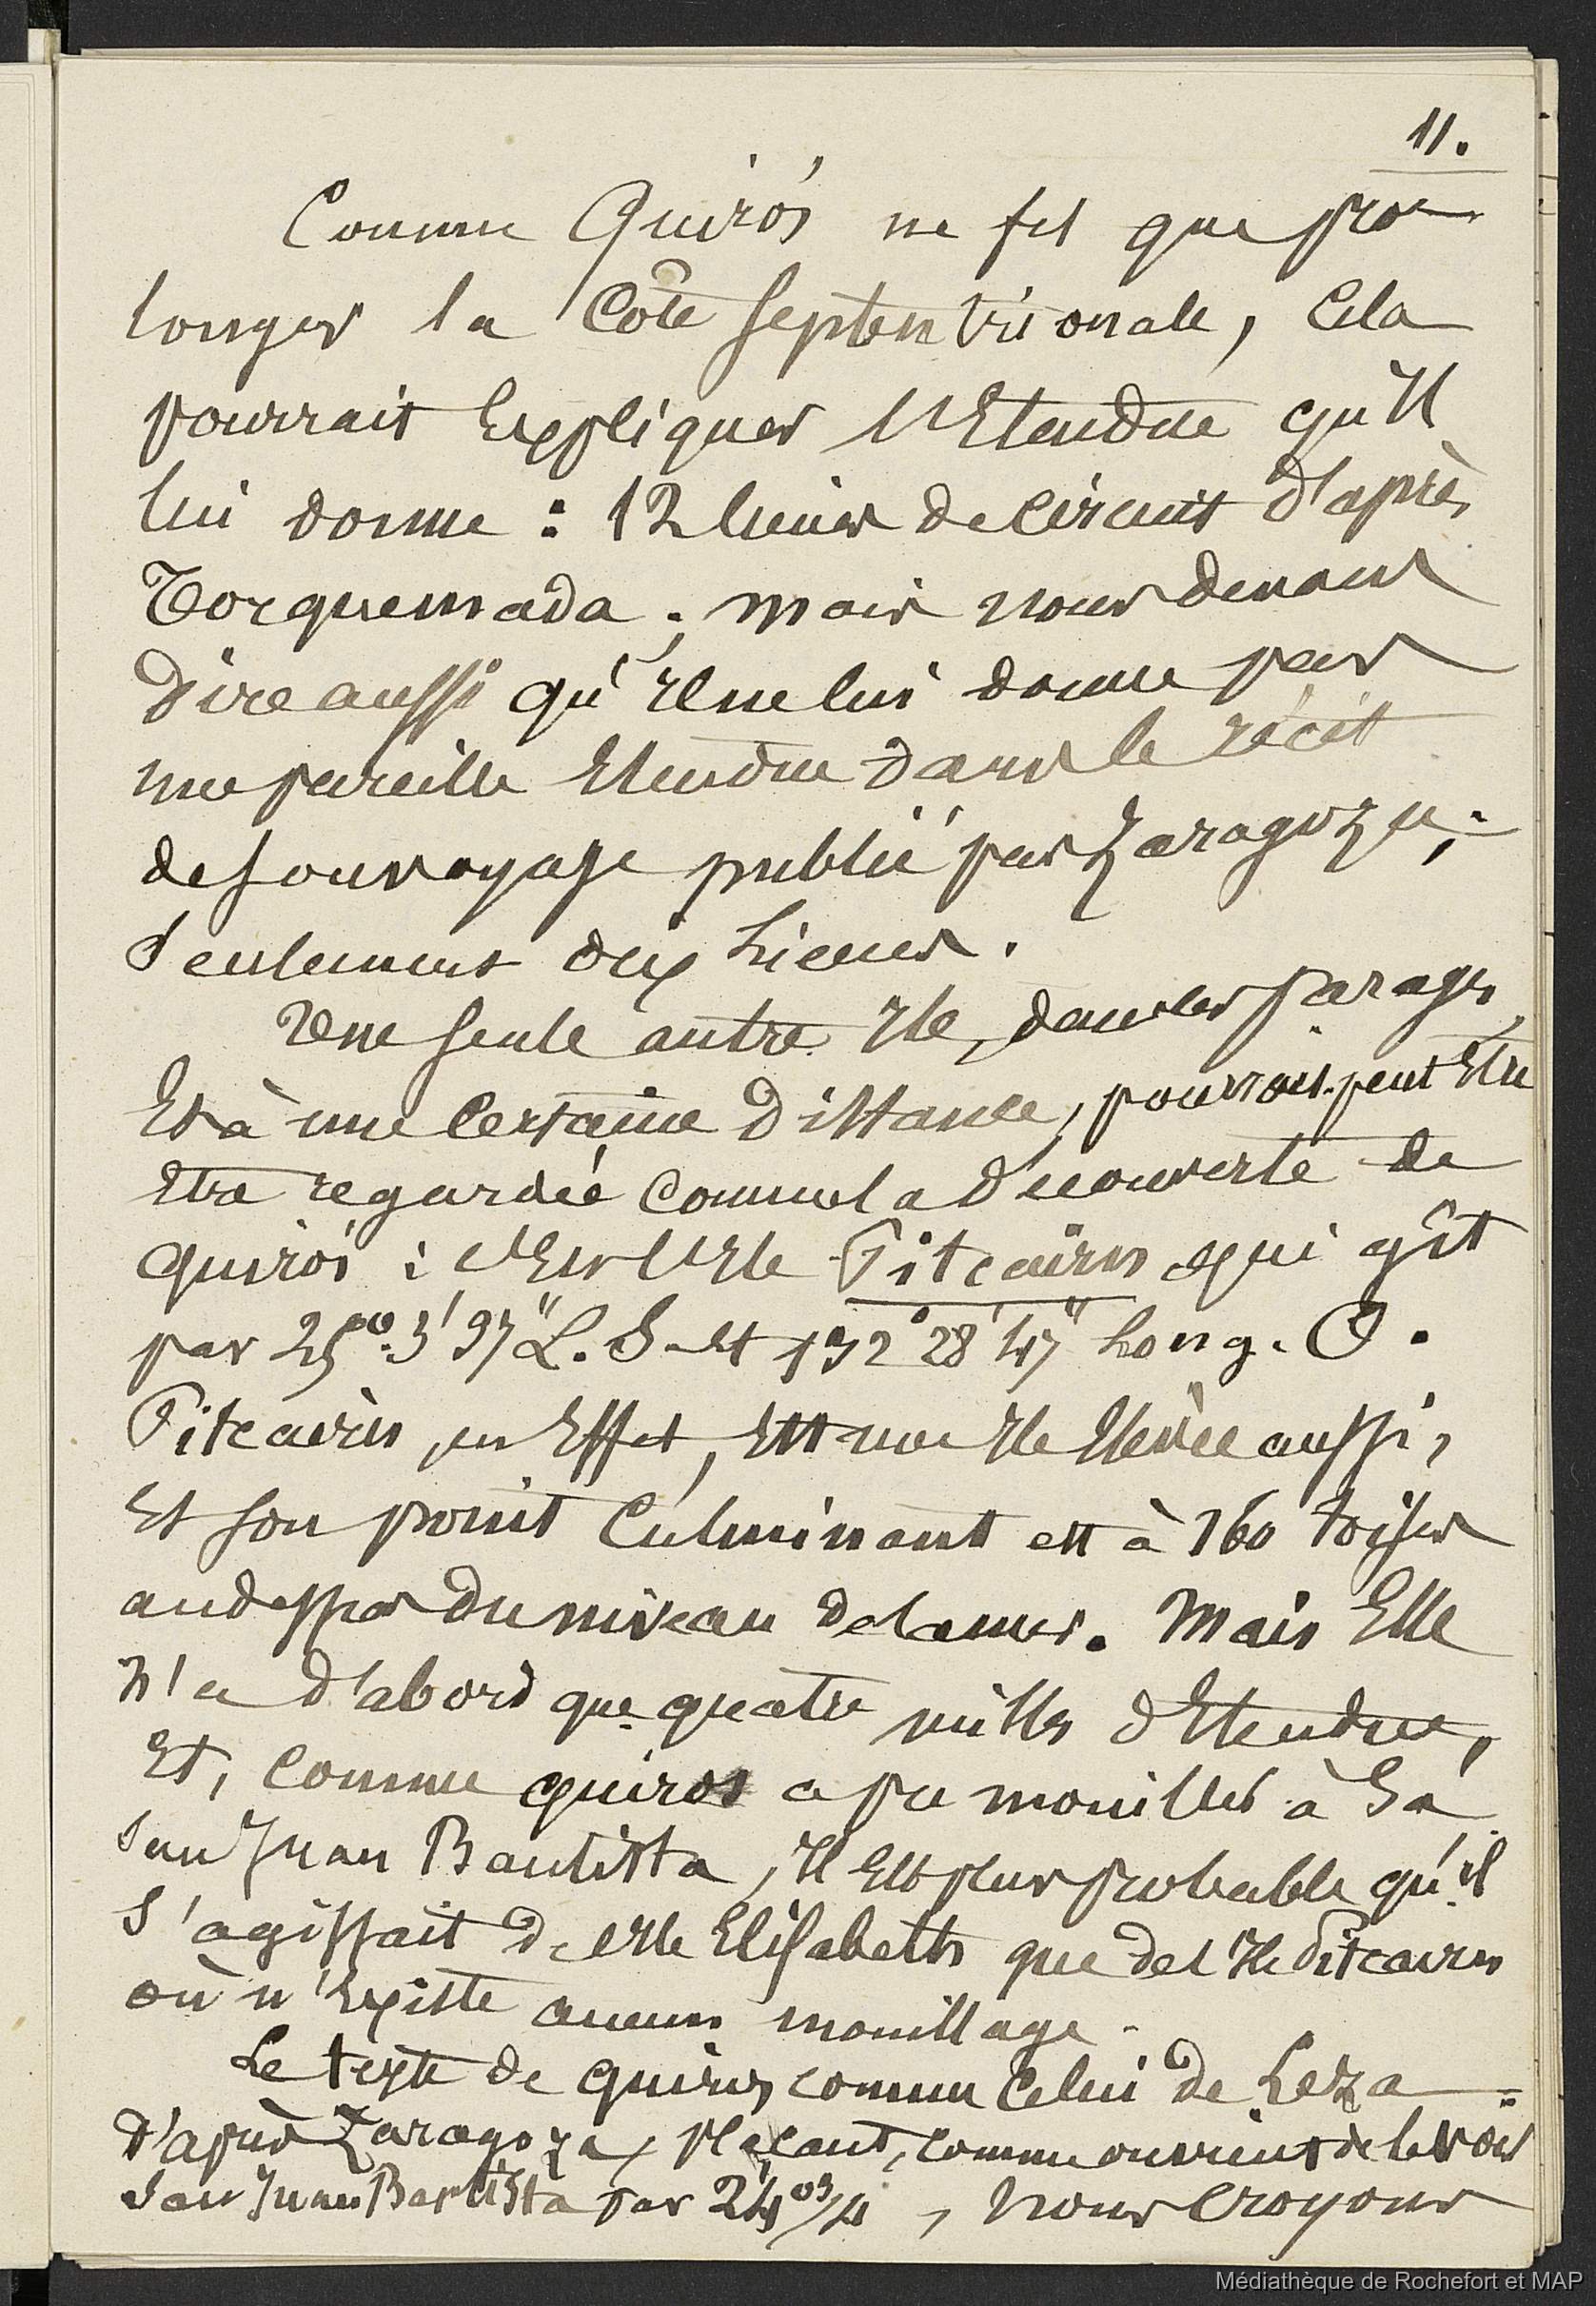 11.
Comme Quirós ne fit que pro-
longer la Côte septentrionale, Cela
pourrait Expliquer l'Etendue qu'Il
lui donne : 12 lieues de circuit d'après
Torquemada ; mais nous devons
Dire aussi qu'Il ne lui donne pas
une pareille Etendue dans le récit
de son voyage publié par Zaragoza ;
Seulement dix Lieues.
Une seule autre Ile, dans les parages
Et à une Certaine Distance, pourrait peut Etre
Etre regardée comme la Découverte de
Quirós : c'Est l'Ile Pitcairn qui gît
par 25° 3' 37" L. S. et 132° 28' 47" Long. O.
Pitcairn, en Effet, Est une Ile Elevée aussi,
Et son point Culminant est à 160 toises
au dessus Du niveau de la mer. Mais Elle
n'a d'abord que quatre milles d'Etendue,
Et, Comme Quiros a pu mouiller à Sa
San Juan Bautista, Il Est plus probable qu'il
s'agissait de l'Ile Elisabeth que de l'Ile Pitcairn
où n'Existe aucun mouillage.
Le texte de Quiros comme Celui de Leza
d'après Zaragoza, plaçant, comme on vient de le voir
San Juan Bautista par 24° 3/4, Nous Croyons
Médiathèque de Rochefort et MAP